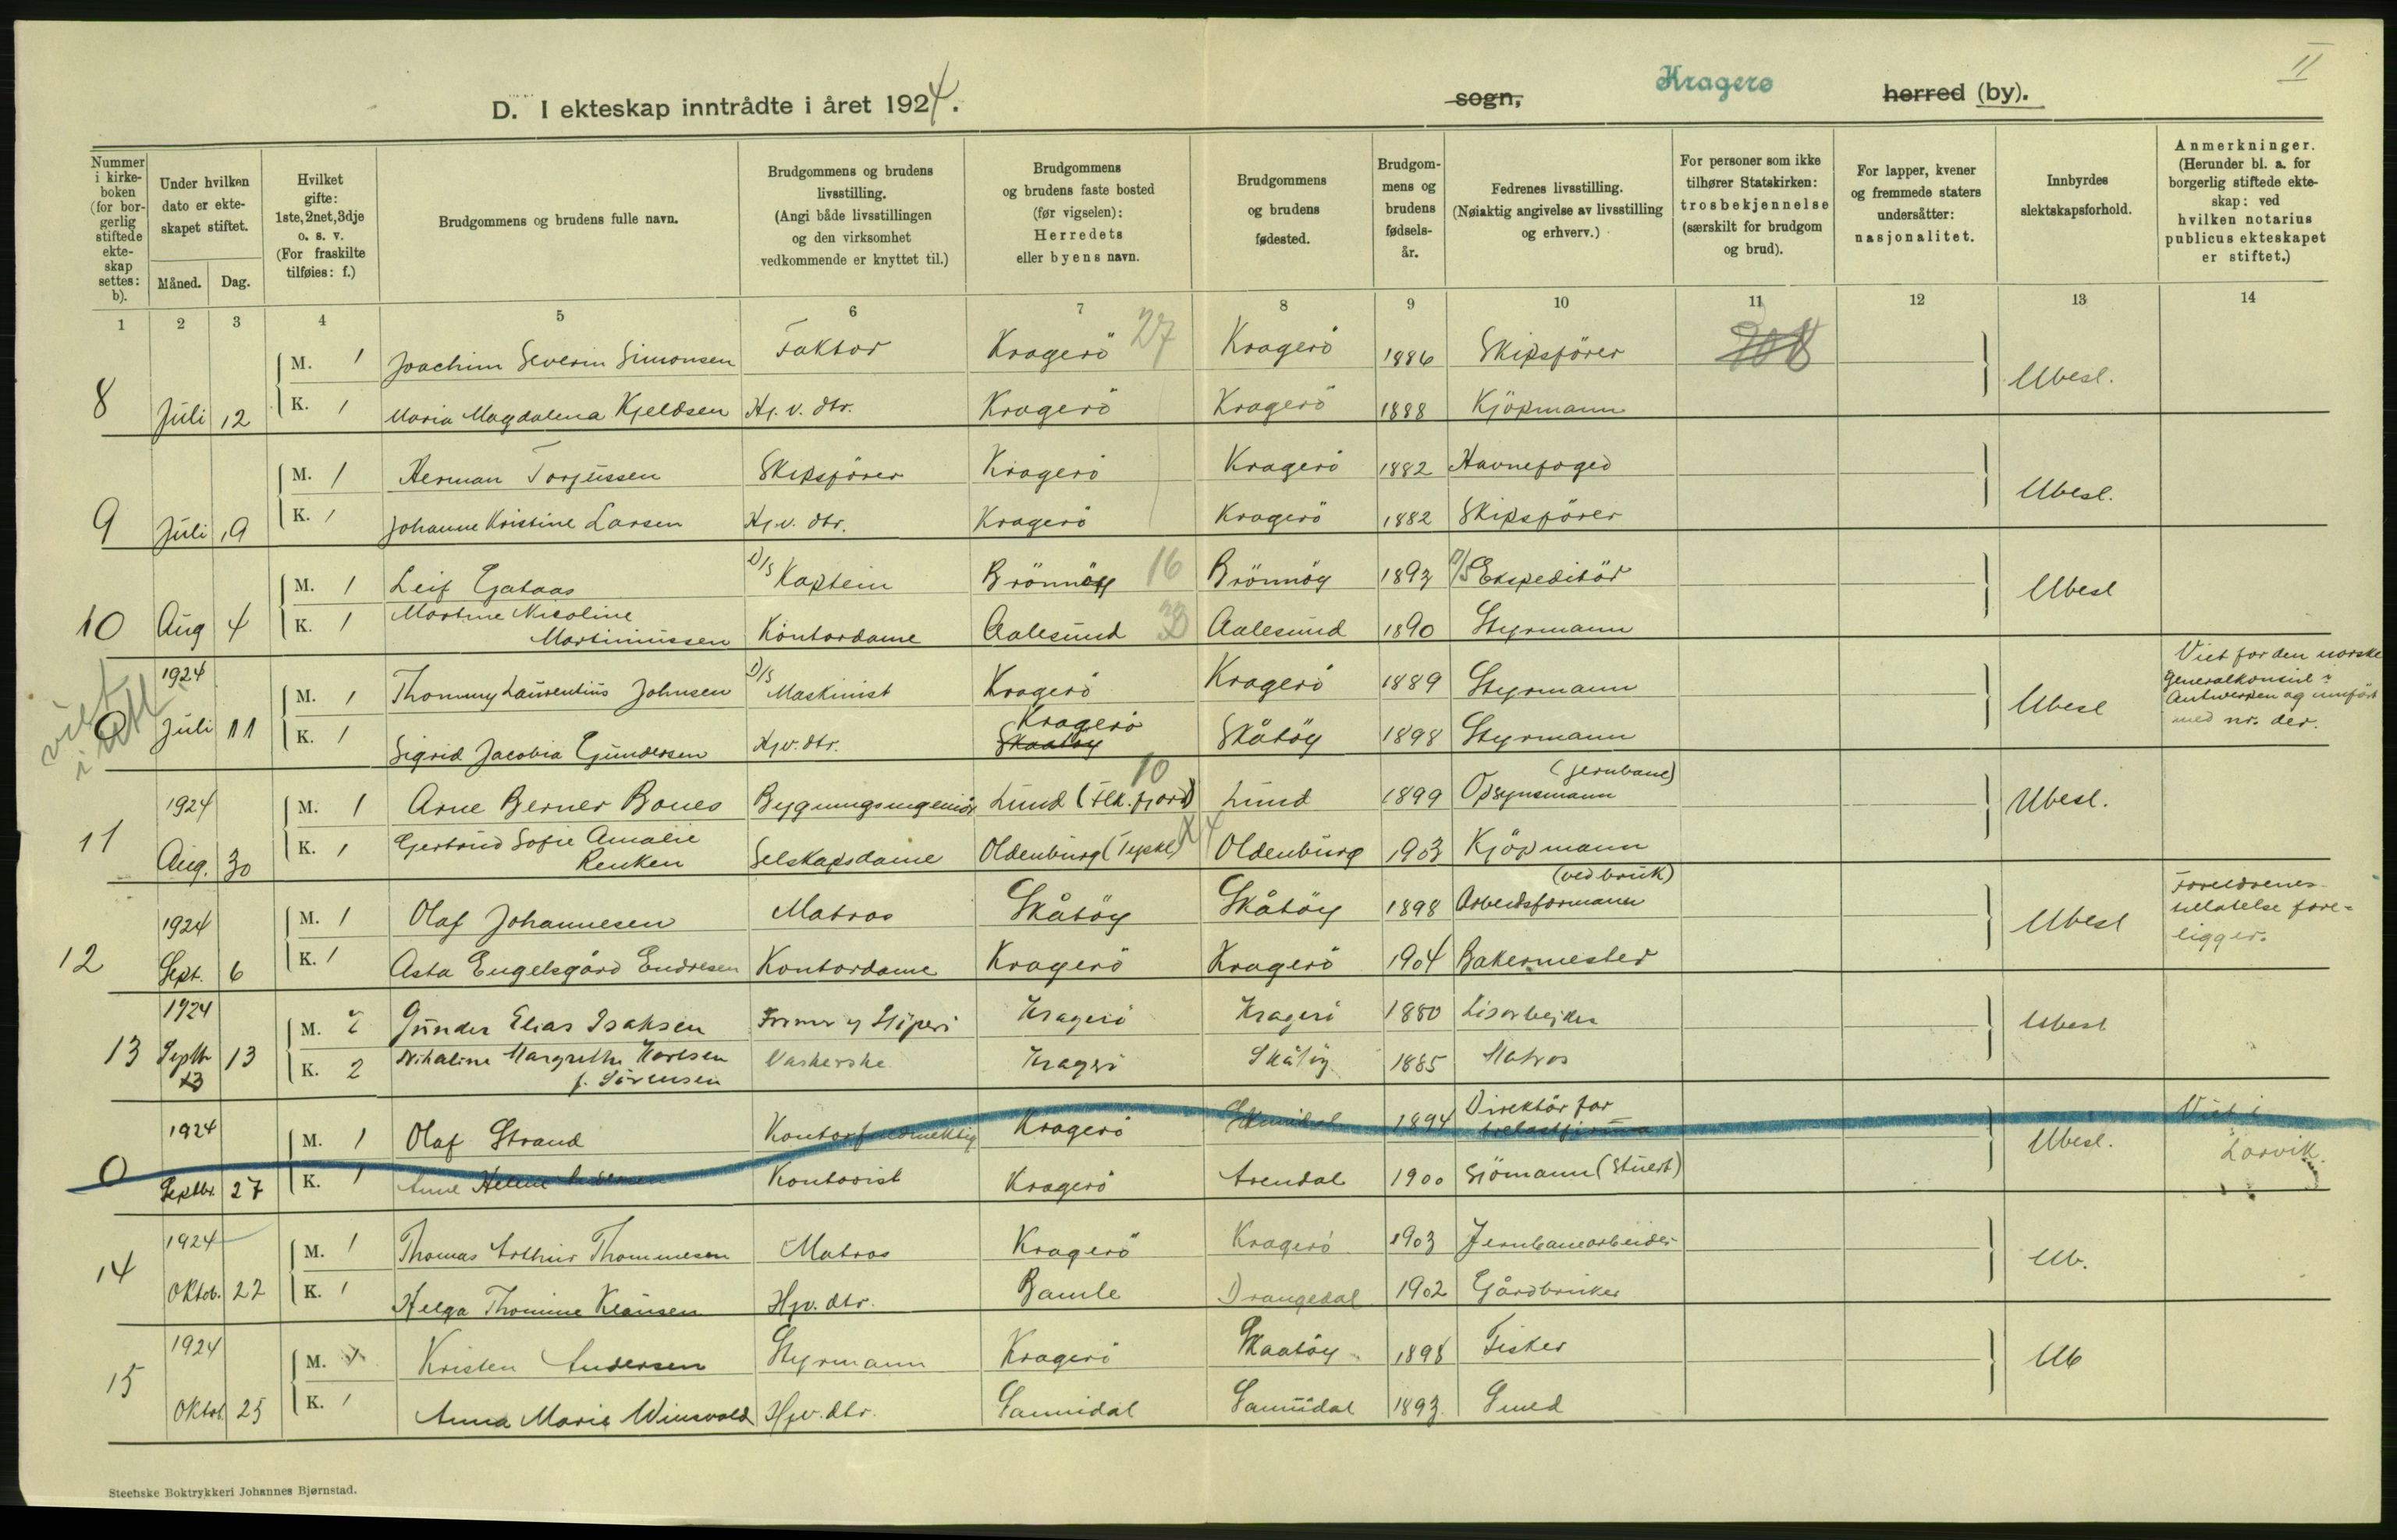 II
D. I ekteskap inntrådte i året 1924.
sogn,
Kragerø
herred (by).
Nummer i kirkeboken (for borgerlig stiftede ekteskap settes: b).
Under hvilken dato er ekteskapet stiftet.
Måned. Dag.
Hvilket gifte: 1ste, 2net, 3dje o. s. v. (For fraskilte tilføies: f.)
Brudgommens og brudens fulle navn.
Brudgommens og brudens livsstilling. (Angi både livsstillingen og den virksomhet vedkommende er knyttet til.)
Brudgommens og brudens faste bosted (før vigselen): Herredets eller byens navn.
Brudgommens og brudens fødested.
Brudgommens og brudens fødselsår.
Fedrenes livsstilling. (Nøiaktig angivelse av livsstilling og erhverv.)
For personer som ikke tilhører Statskirken: trosbekjennelse (særskilt for brudgom og brud).
For lapper, kvener og fremmede staters undersåtter: nasjonalitet.
Innbyrdes slektskapsforhold.
Anmerkninger. (Herunder bl. a. for borgerlig stiftede ekteskap: ved hvilken notarius publicus ekteskapet er stiftet.)
1 2 3 4 5 6 7 8 9 10 11 12 13 14
M. 1 Joachim Severin Simonsen Faktor Kragerö 27 Kragerö 1886 Skipsförer
8 Juli 12 K. 1 Maria Magdalena Kjeldsen Hj. v. dtr. Kragerö Kragerö 1888 Kjöpmann Ubesl.
M. 1 Herman Torjussen Skipsförer Kragerö Kragerö 1882 Havnefoged
9 Juli 19 K. 1 Johanne Kristine Larsen Hj. v. dtr. Kragerö Kragerö 1882 Skipsförer Ubesl.
M. 1 Leif Gataas D/S Kaptein Brönnöy 16 Brönnöy 1893 D/S Ekspeditör
10 Aug 4 K. 1 Martine Nicoline Martiniussen Kontordame Aalesund Aalesund 1890 Styrmann Ubesl
1924 M. 1 Thommy Laurentius Johnsen D/S Maskinist Kragerö Kragerö 1889 Styrmann
0 Juli 11 K. 1 Sigrid Jacobia Gundersen Hjv. dtr. Skaatöy Kragerö Skåtöy 1898 Styrmann Ubesl
Viet for den norske
generalkonsul i
Antwerpen og innfört
med nr. der.
1924 M. 1 Arne Berner Boues Bygningsingeniör Lund (Flk. fjord) 10 Lund 1899 Opsynsmann (jernbane)
11 Aug. 30 K. 1 Gertrud Sofie Amalie Renken Selskapsdame Oldenburg (Tyskl) Oldenburg 1903 Kjöpmann Ubesl.
1924 M. 1 Olaf Johannesen Matros Skåtöy Skåtöy 1898 Arbeidsformann (ved bruk)
12 Sept. 6 K. 1 Asta Engelsgård Endresen Kontordame Kragerö Kragerö 1904 Bakermester Ubesl
Foreldrenes
tillatelse fore-
ligger.
1924 M. 2 Gunder Elias Isaksen Former Kragerö Kragerö 1880
13 Septbr 13 K. 2 Nikaline Margrethe Karlsen f. Sörensen Vaskerske Kragerö Skåtöy 1885 Matros Ubesl
1924 M. 1 Olaf Strand Kontorfuldmektig Kragerö 1894 Direktör for trelastfirma
0 Septbr. 27 K. 1 Anne Helene Kontorist Kragerö Arendal 1900 Sjömann (Stuert) Ubesl.
Viet i
Larvik.
1924 M. 1 Thomas Arthur Thommesen Matros Kragerö Kragerö 1903 Jernbanearbeider
14 Oktob. 22 K. 1 Helga Thomine Klausen Hjv. dtr. Bamle Drangedal 1902 Gårdbruker Ub.
1924 M. 1 Kristen Andersen Styrmann Kragerö Skaatöy 1898 Fisker
15 Oktob 25 K. 1 Anna Marie Winsvold Hjv. dtr. Sannidal Sannidal 1893 Smed Ub
Steenske Boktrykkeri Johannes Bjørnstad.